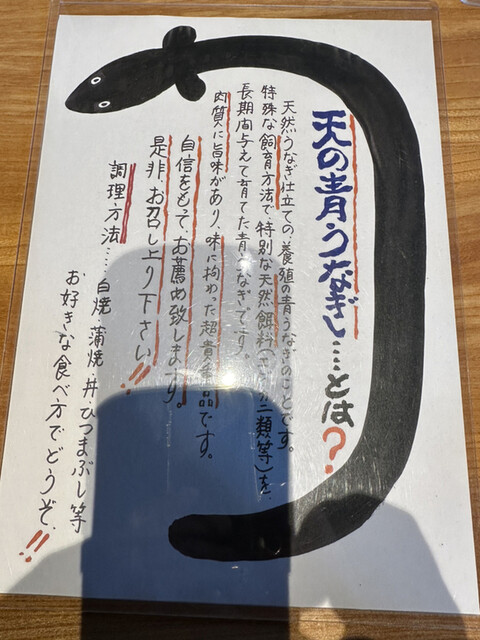 天の青うなぎ……とは?
天然うなぎ仕立ての、養殖の青うなぎのことです。
特殊な飼育方法で、特別な天然餌料(二類等)を、
長期間与えて育てた青うなぎであり。
肉質に旨味があり、味に拘わった超貴重品です。
自信をもって、お薦め致します。
是非、お召し上り下さい!!
調理方法……白焼、蒲焼、丼、ひつまぶし等
お好きな食べ方でどうぞ、!!